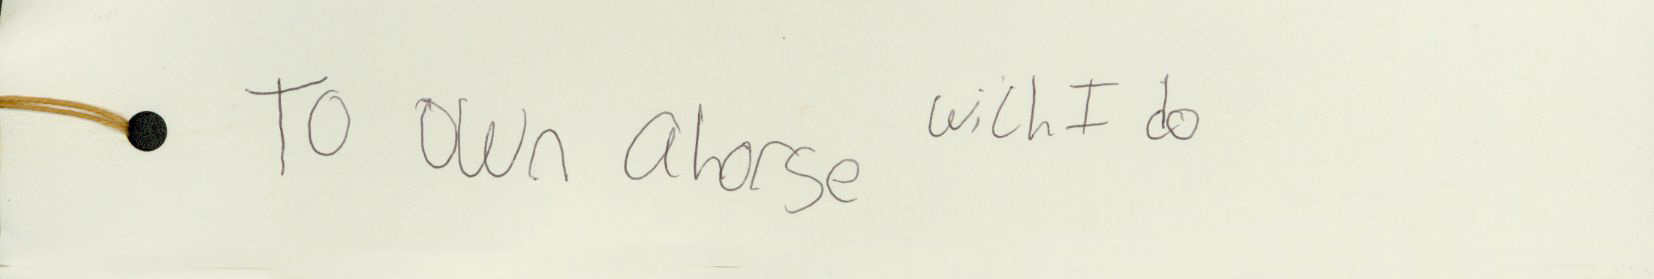 To own a horse wich I do